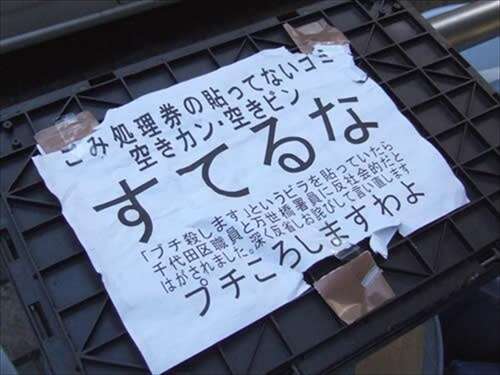 ごみ処理券の貼ってないゴミ
空きカン・空きビン
すてるな
「ブチ殺します」というビラを貼っていたら
千代田区職員と万世橋署員に反社会的だと
はがされました。深く反省しお詫びして言い直します
プチころしますわよ